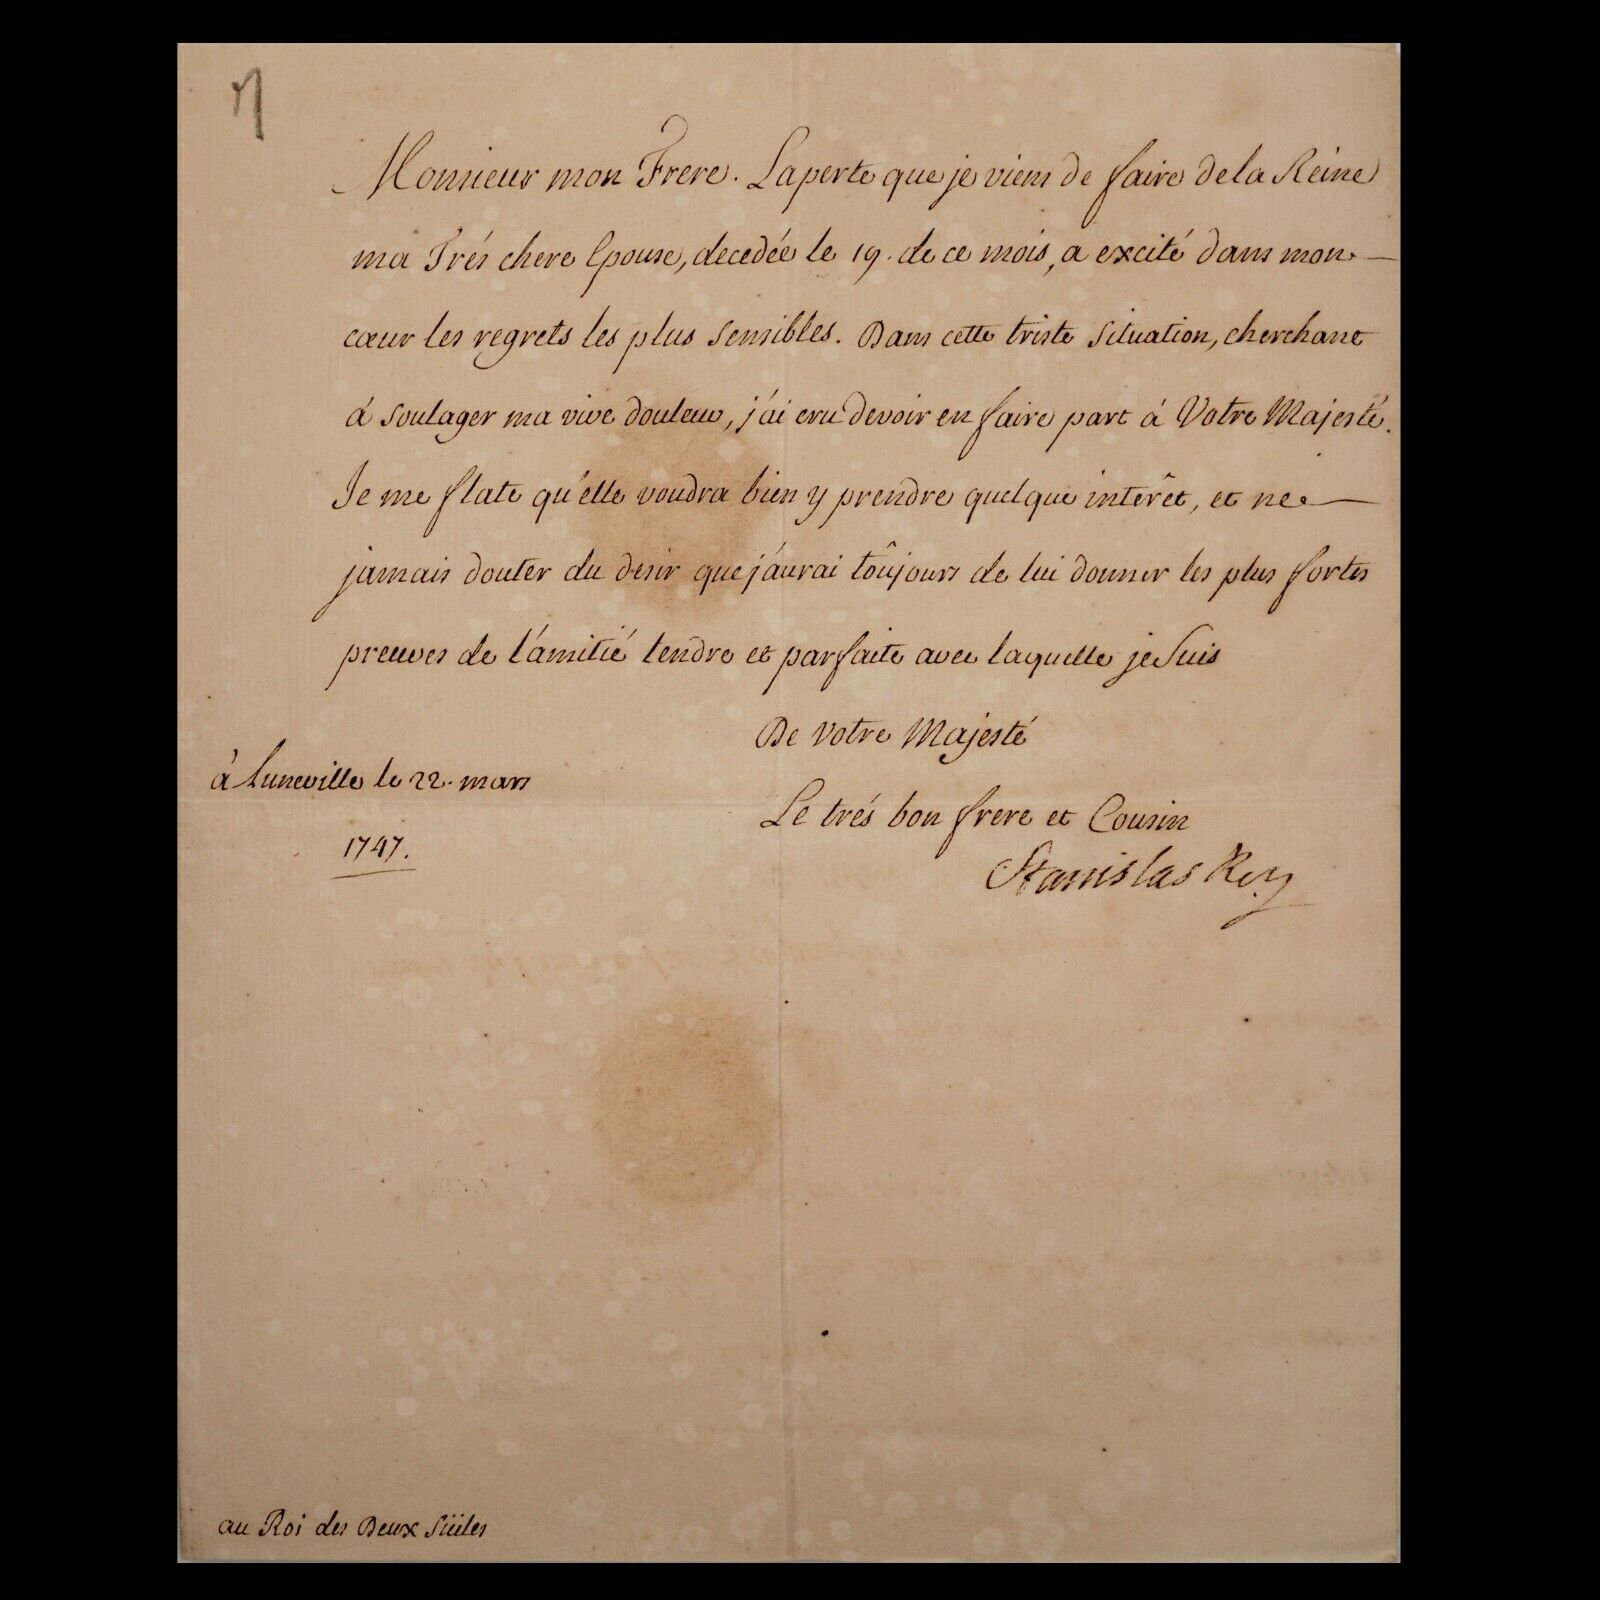 Monsieur mon Frere. La perte que je viens de faire de la Reine
ma Trés chere Epouse, decedée le 19. de ce mois, a excité dans mon
cœur les regrets les plus sensibles. Dans cette triste situation, cherchant
á soulager ma vive douleur, j'ai cru devoir en faire part á Votre Majesté.
Je me flate qu'elle voudra bien y prendre quelque intérêt, et ne
jamais douter du desir que j'aurai toûjours de lui donner les plus fortes
preuves de l'amitié tendre et parfaite avec laquelle je suis
De Votre Majesté
à Luneville le 22. mars
1747.
Le trés bon frere et Cousin
Stanislas Roy
au Roi des Deux Siciles